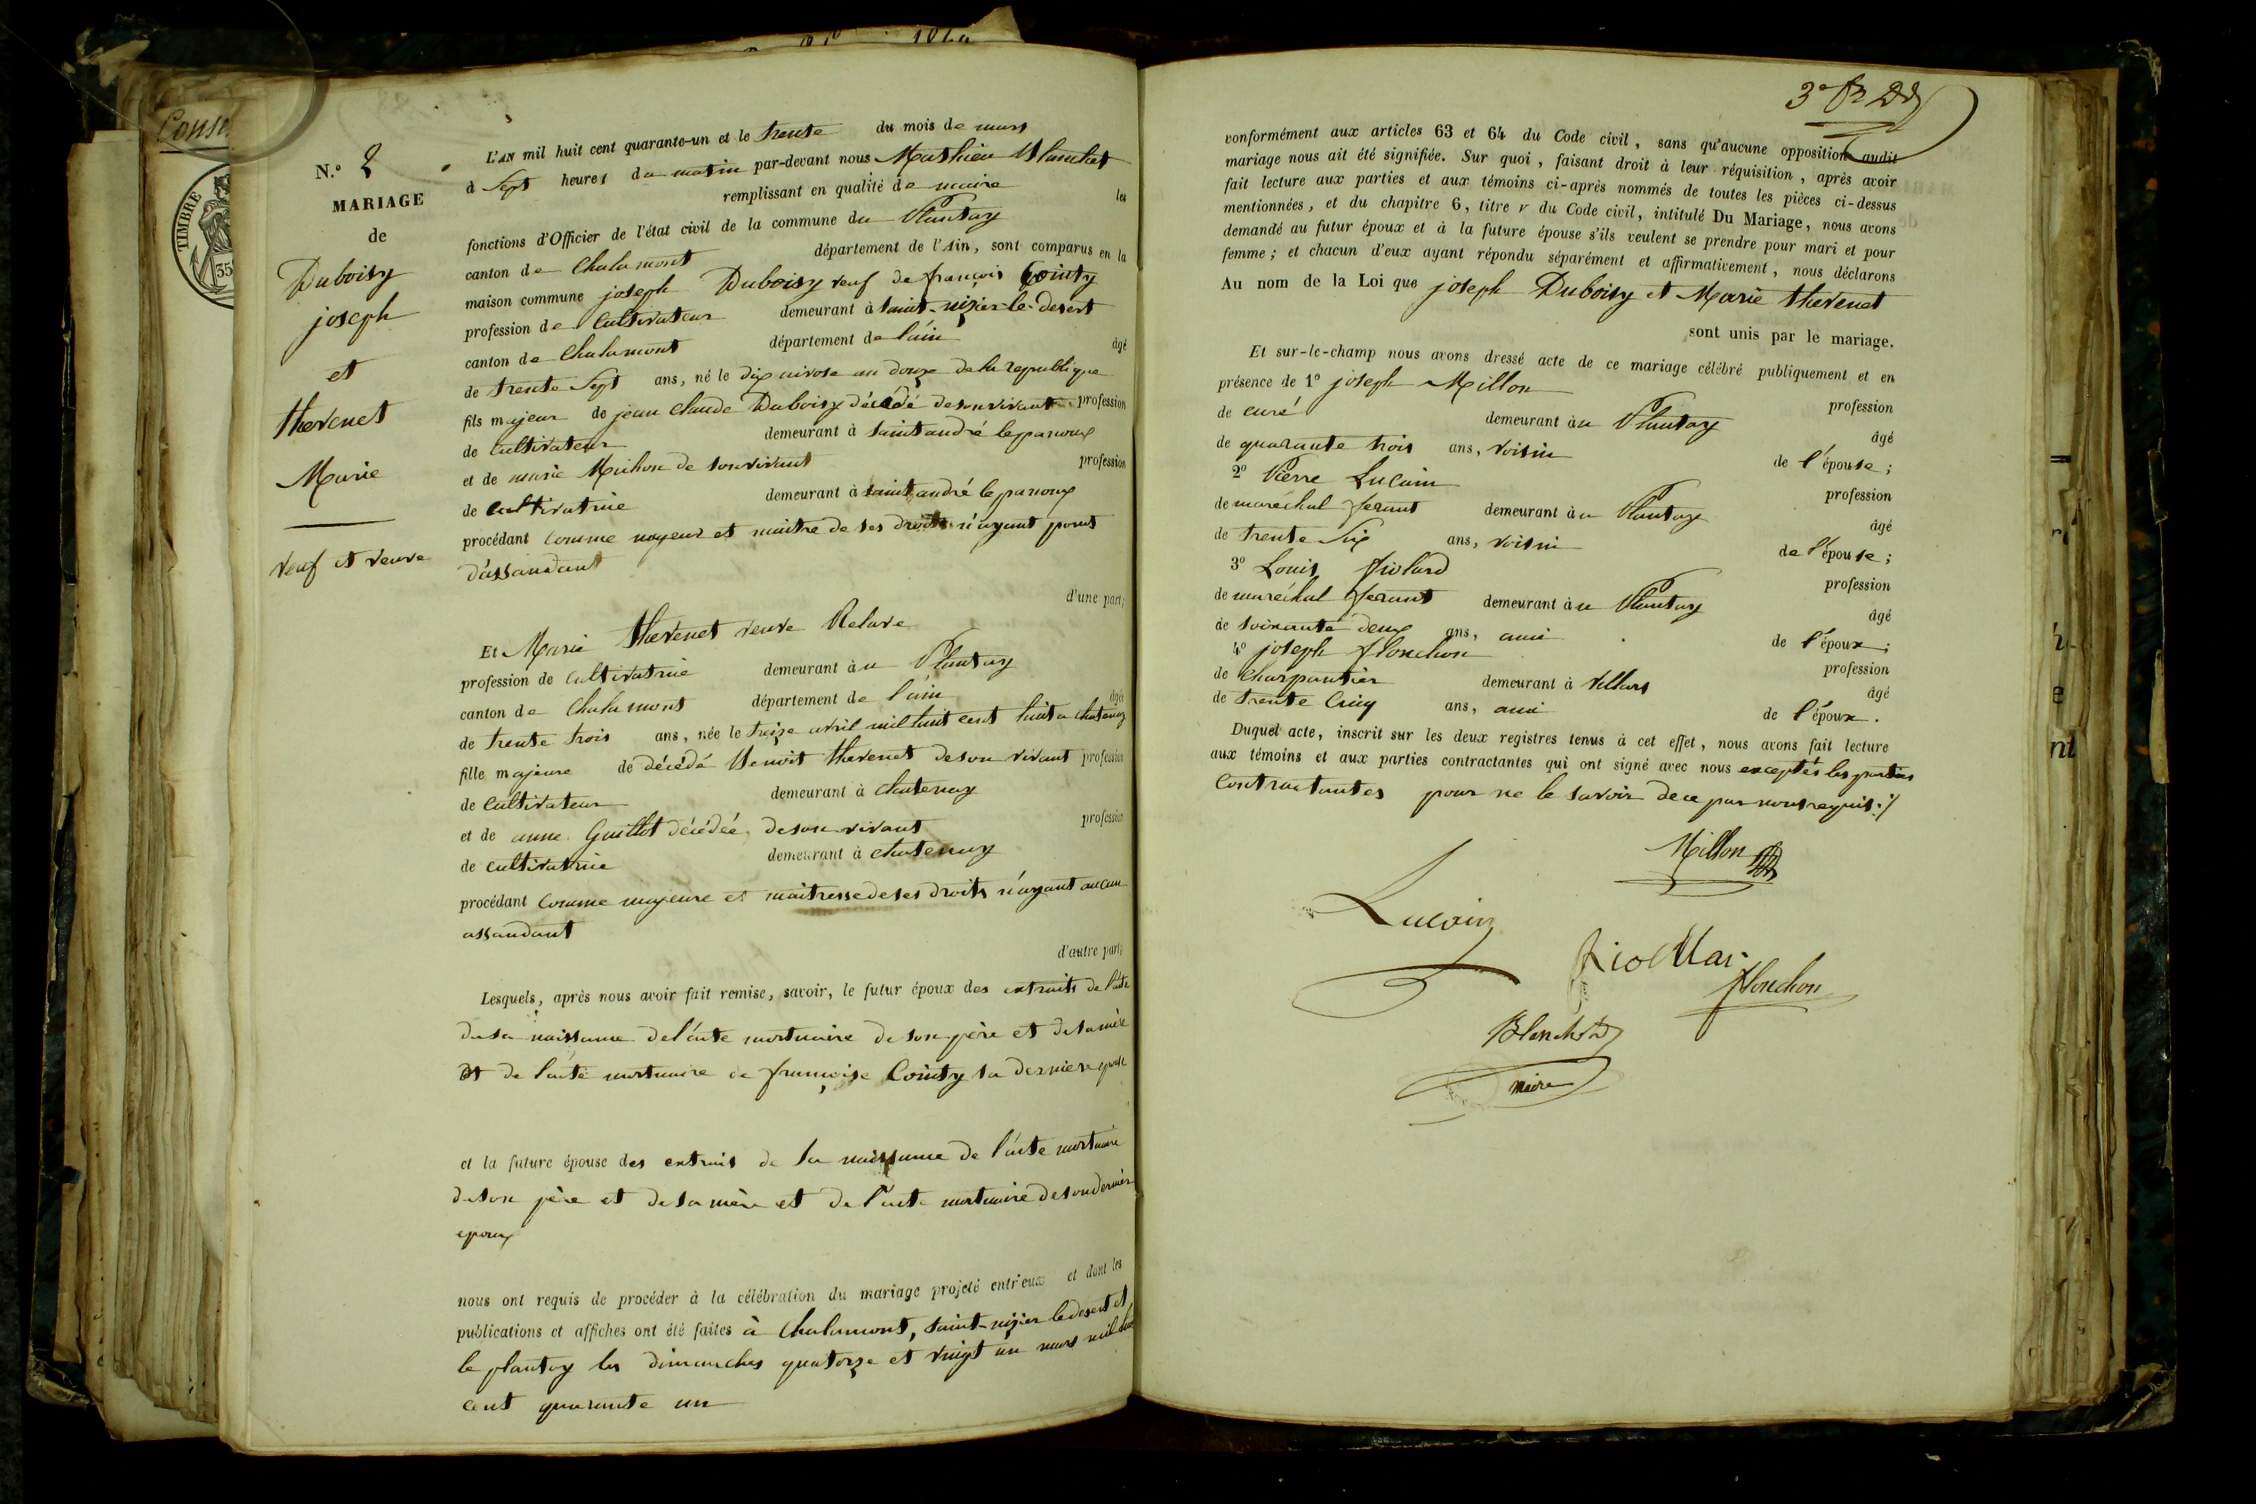 Conse
TIMBRE
35
N.° 2
MARIAGE
de
Duboisy
joseph
et
thevenet
Marie
veuf et veuve
L'AN mil huit cent quarante-un et le trente du mois de mars
à Sept heures du matin par-devant nous Mathieu Blanchet
remplissant en qualité de maire les
fonctions d'Officier de l'état civil de la commune du Plantay
canton de Chalamont département de l'Ain, sont comparus en la
maison commune joseph Duboisy veuf de françois Cointy
profession de Cultivateur demeurant à saint-nizier-le-desert
canton de Chalamont département de l'ain âgé
de trente Sept ans, né le dix nivose an douze de la republique
fils majeur de jean Claude Duboisy décédé de son vivant profession
de Cultivateur demeurant à saint andré le panoux
et de marie Michon de son vivant profession
de Cultivatrice demeurant à saint andré le panoux
procédant comme majeur et maitre de ses droits n'ayant point
d'assandant
d'une part;
Et Marie thevenet veuve Relave
profession de cultivatrice demeurant au Plantay
canton de Chalamont département de l'ain âgée
de trente trois ans, née le treize avril mil huit cent huit a chatenay
fille majeure de décédé Benoit thevenet de son vivant profession
de Cultivateur demeurant à chatenay
et de anne Guillot décédée de son vivant profession
de cultivatrice demeurant à chatenay
procédant Comme majeure et maitresse de ses droits n'ayant aucun
assandant
d'autre part;
Lesquels, après nous avoir fait remise, savoir, le futur époux des extraits de l'acte
de sa naissance de l'acte mortuaire de son père et de sa mère
Et de l'acte mortuaire de françoise Cointy sa derniere epouse
et la future épouse des extrais de sa naissance de l'acte mortuaire
de son père et de sa mère et de l'acte mortuaire de son dernier
epoux
nous ont requis de procéder à la célébration du mariage projeté entr'eux et dont les
publications et affiches ont été faites à Chalamont, saint-nizier le desert et
le plantay les dimanches quatorze et vingt un mars mil huit
cent quarante un
conformément aux articles 63 et 64 du Code civil, sans qu'aucune opposition audit
mariage nous ait été signifiée. Sur quoi, faisant droit à leur réquisition, après avoir
fait lecture aux parties et aux témoins ci-après nommés de toutes les pièces ci-dessus
mentionnées, et du chapitre 6, titre v du Code civil, intitulé Du Mariage, nous avons
demandé au futur époux et à la future épouse s'ils veulent se prendre pour mari et pour
femme; et chacun d'eux ayant répondu séparément et affirmativement, nous déclarons
Au nom de la Loi que joseph Duboisy et Marie thevenet
sont unis par le mariage.
Et sur-le-champ nous avons dressé acte de ce mariage célébré publiquement et en
présence de 1° joseph Millon profession
de curé demeurant au Plantay âgé
de quarante trois ans, voisin de l'épouse;
2° Pierre Lucain profession
de maréchal ferant demeurant au Plantay âgé
de trente Six ans, voisin de l'épouse;
3° Louis fiolard profession
de maréchal ferant demeurant au Plantay âgé
de soixante deux ans, ami de l'époux;
4° joseph flonchon profession
de Charpantier demeurant à Villars âgé
de trente Cinq ans, ami de l'époux.
Duquel acte, inscrit sur les deux registres tenus à cet effet, nous avons fait lecture
aux témoins et aux parties contractantes qui ont signé avec nous exceptés les parties
Contractantes pour ne le savoir de ce par nous requis./
Millon
Lucain
fiollar
flonchon
Blanchet
maire